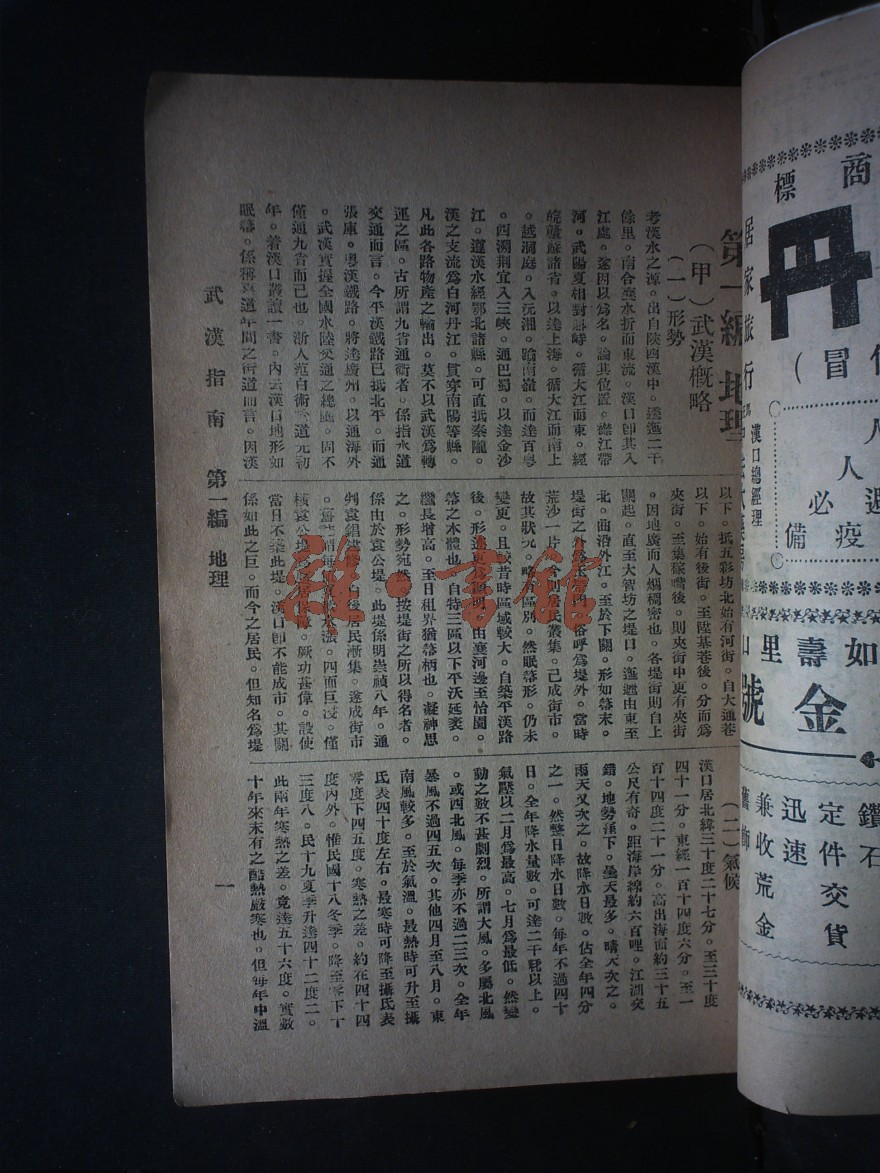 第一編 地理
（甲）武漢槪略
（一）形勢
考漢水之源。出自陝西漢中。逶迤二千
餘里。南合襄水折而東流。漢口卽其入
江處。遂因以爲名。論其位置。襟江帶
河。武陽夏相對峙。循大江而東。經
皖贛蘇諸省。以達上海。循大江而南上
。越洞庭。入沅湘。踰南嶺。而達百粤
。西溯荆宜入三峽。通巴蜀。以達金沙
江。遵漢水經鄂北諸縣。可直抵秦隴。
漢之支流爲白河丹江。貫穿南陽等縣。
凡此各路物產之輸出。莫不以武漢爲轉
運之區。古所謂九省通衢者。係指水道
交通而言。今平漢鐵路已抵北平。而通
張庫。粤漢鐵路。將達廣州。以通海外
。武漢實握全國水陸交通之總匯。固不
僅通九省而已也。浙人范白術 道元初
年。着漢口叢談一書。內云漢口地形如
眠幕。係稱 道年間之街道而言。因漢
以下。抵五彩坊北始有河街。自大通巷
以下。始有後街。至陞基巷後。分而爲
夾街。至集稼嘴後。則夾街中更有夾街
。因地廣而人烟稠密也。各堤街則自上
關起。直至大智坊之堤口。迤邐由東至
北。曲沿外江。至於下關。形如幕末。
堤街之外 俗呼爲堤外。當時
荒沙一片。今則居民叢集。已成街市。
故其狀况。略 區別。然眠幕形。仍未
變更。且較昔時區域較大。自築平漢路
後。形迹更爲 明。由襄河邊至怡園。
幕之本體也。自特三區以下平沃延袤。
繼長增高。至日租界猶幕柄也。凝神思
之。形勢宛然。按堤街之所以得名者。
係由於袁公堤。此堤係明崇禎八年。通
判袁焻 。自後居民漸集。遂成街市
。 謂每 水漲。四面巨浸。僅
橫袁公堤 居民 。厥功甚偉。設使
當日不築此堤。漢口卽不能成市。其關
係如此之巨。而今之居民。但知名爲堤
（二）氣候
漢口居北緯三十度二十七分。至三十度
四十一分。東經一百十四度六分。至一
百十四度二十一分。高出海面約三十五
公尺有奇。距海岸綫約六百哩。江湖交
錯。地勢窪下。曇天最多。晴天次之。
雨天又次之。故降水日數。佔全年四分
之一。然整日降水日數。每年不過四十
日。全年降水量數。可達二千粍以上。
氣壓以二月爲最高。七月爲最低。然變
動之數不甚劇烈。所謂大風。多屬北風
。或西北風。每季亦不過二三次。全年
暴風不過四五次。其他四月至八月。東
南風較多。至於氣溫。最熱時可升至攝
氏表四十度左右。最寒時可降至攝氏表
零度下四五度。寒熱之差。約在四十四
度內外。惟民國十八冬季。降至零下十
三度八。民十九夏季升達四十二度二。
此兩年寒熱之差。竟達五十六度。實數
十年來未有之酷熱嚴寒也。但每年中溫
武漢指南 第一編 地理
一
商標
丹
冒
居家旅行
漢口總經理
人
必
備
疫
如壽里口
金號
鑽石
定件交貨
迅速
兼收荒金
舊飾
雅·書館